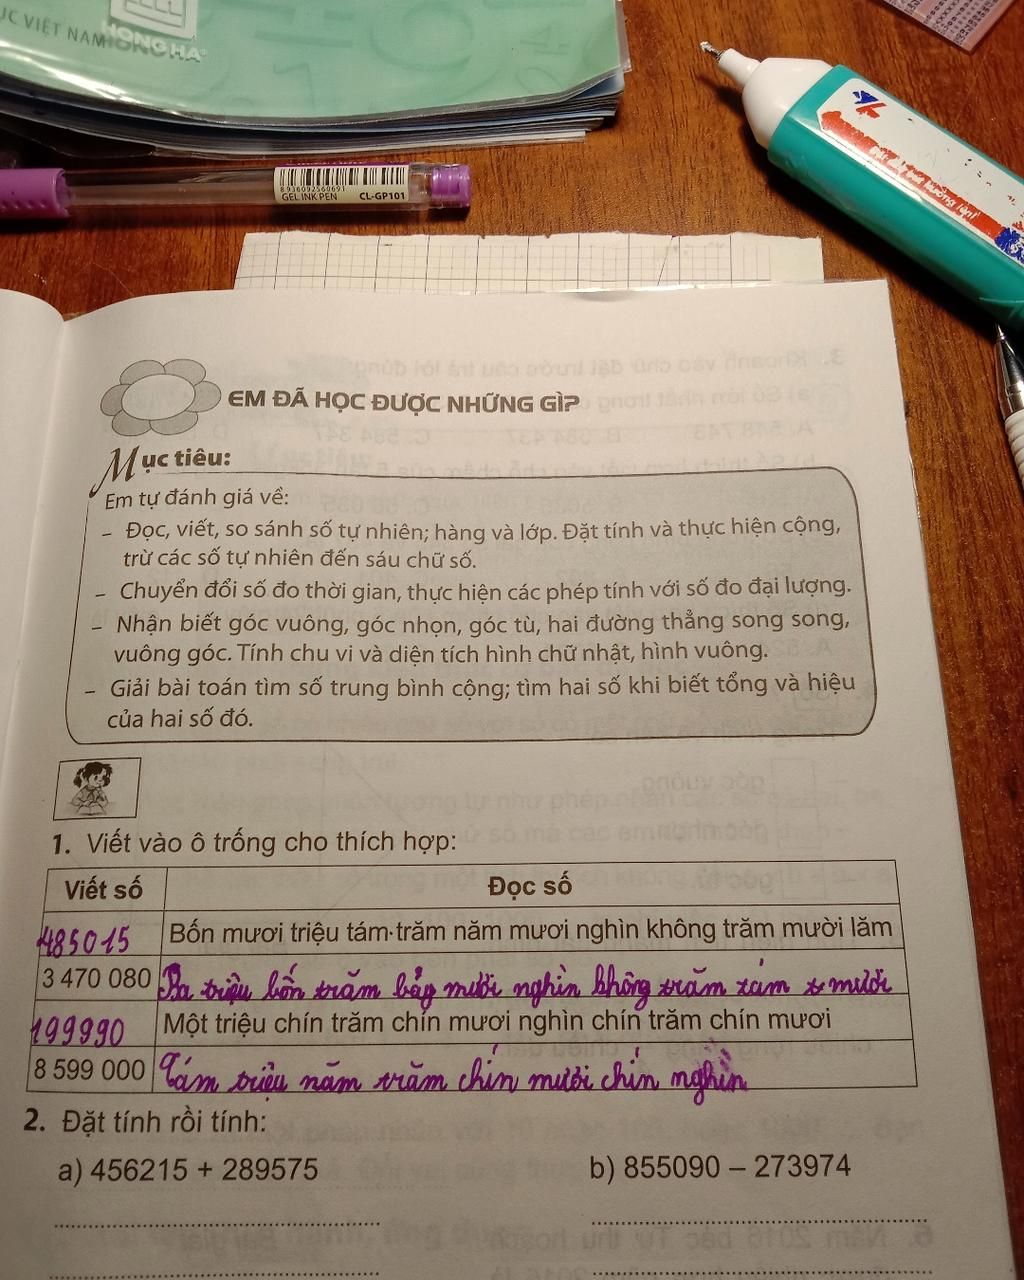 ỤC VIỆT NAM
HONG HA
8 936092 560691
GEL INK PEN CL-GP101
EM ĐÃ HỌC ĐƯỢC NHỮNG GÌ?
Mục tiêu:
Em tự đánh giá về:
– Đọc, viết, so sánh số tự nhiên; hàng và lớp. Đặt tính và thực hiện cộng,
trừ các số tự nhiên đến sáu chữ số.
– Chuyển đổi số đo thời gian, thực hiện các phép tính với số đo đại lượng.
– Nhận biết góc vuông, góc nhọn, góc tù, hai đường thẳng song song,
vuông góc. Tính chu vi và diện tích hình chữ nhật, hình vuông.
– Giải bài toán tìm số trung bình cộng; tìm hai số khi biết tổng và hiệu
của hai số đó.
1. Viết vào ô trống cho thích hợp:
Viết số Đọc số
485015 Bốn mươi triệu tám trăm năm mươi nghìn không trăm mười lăm
3 470 080 Ba triệu bốn trăm bảy mươi nghìn không trăm tám mươi
199990 Một triệu chín trăm chín mươi nghìn chín trăm chín mươi
8 599 000 Tám triệu năm trăm chín mươi chín nghìn
2. Đặt tính rồi tính:
a) 456215 + 289575 b) 855090 – 273974